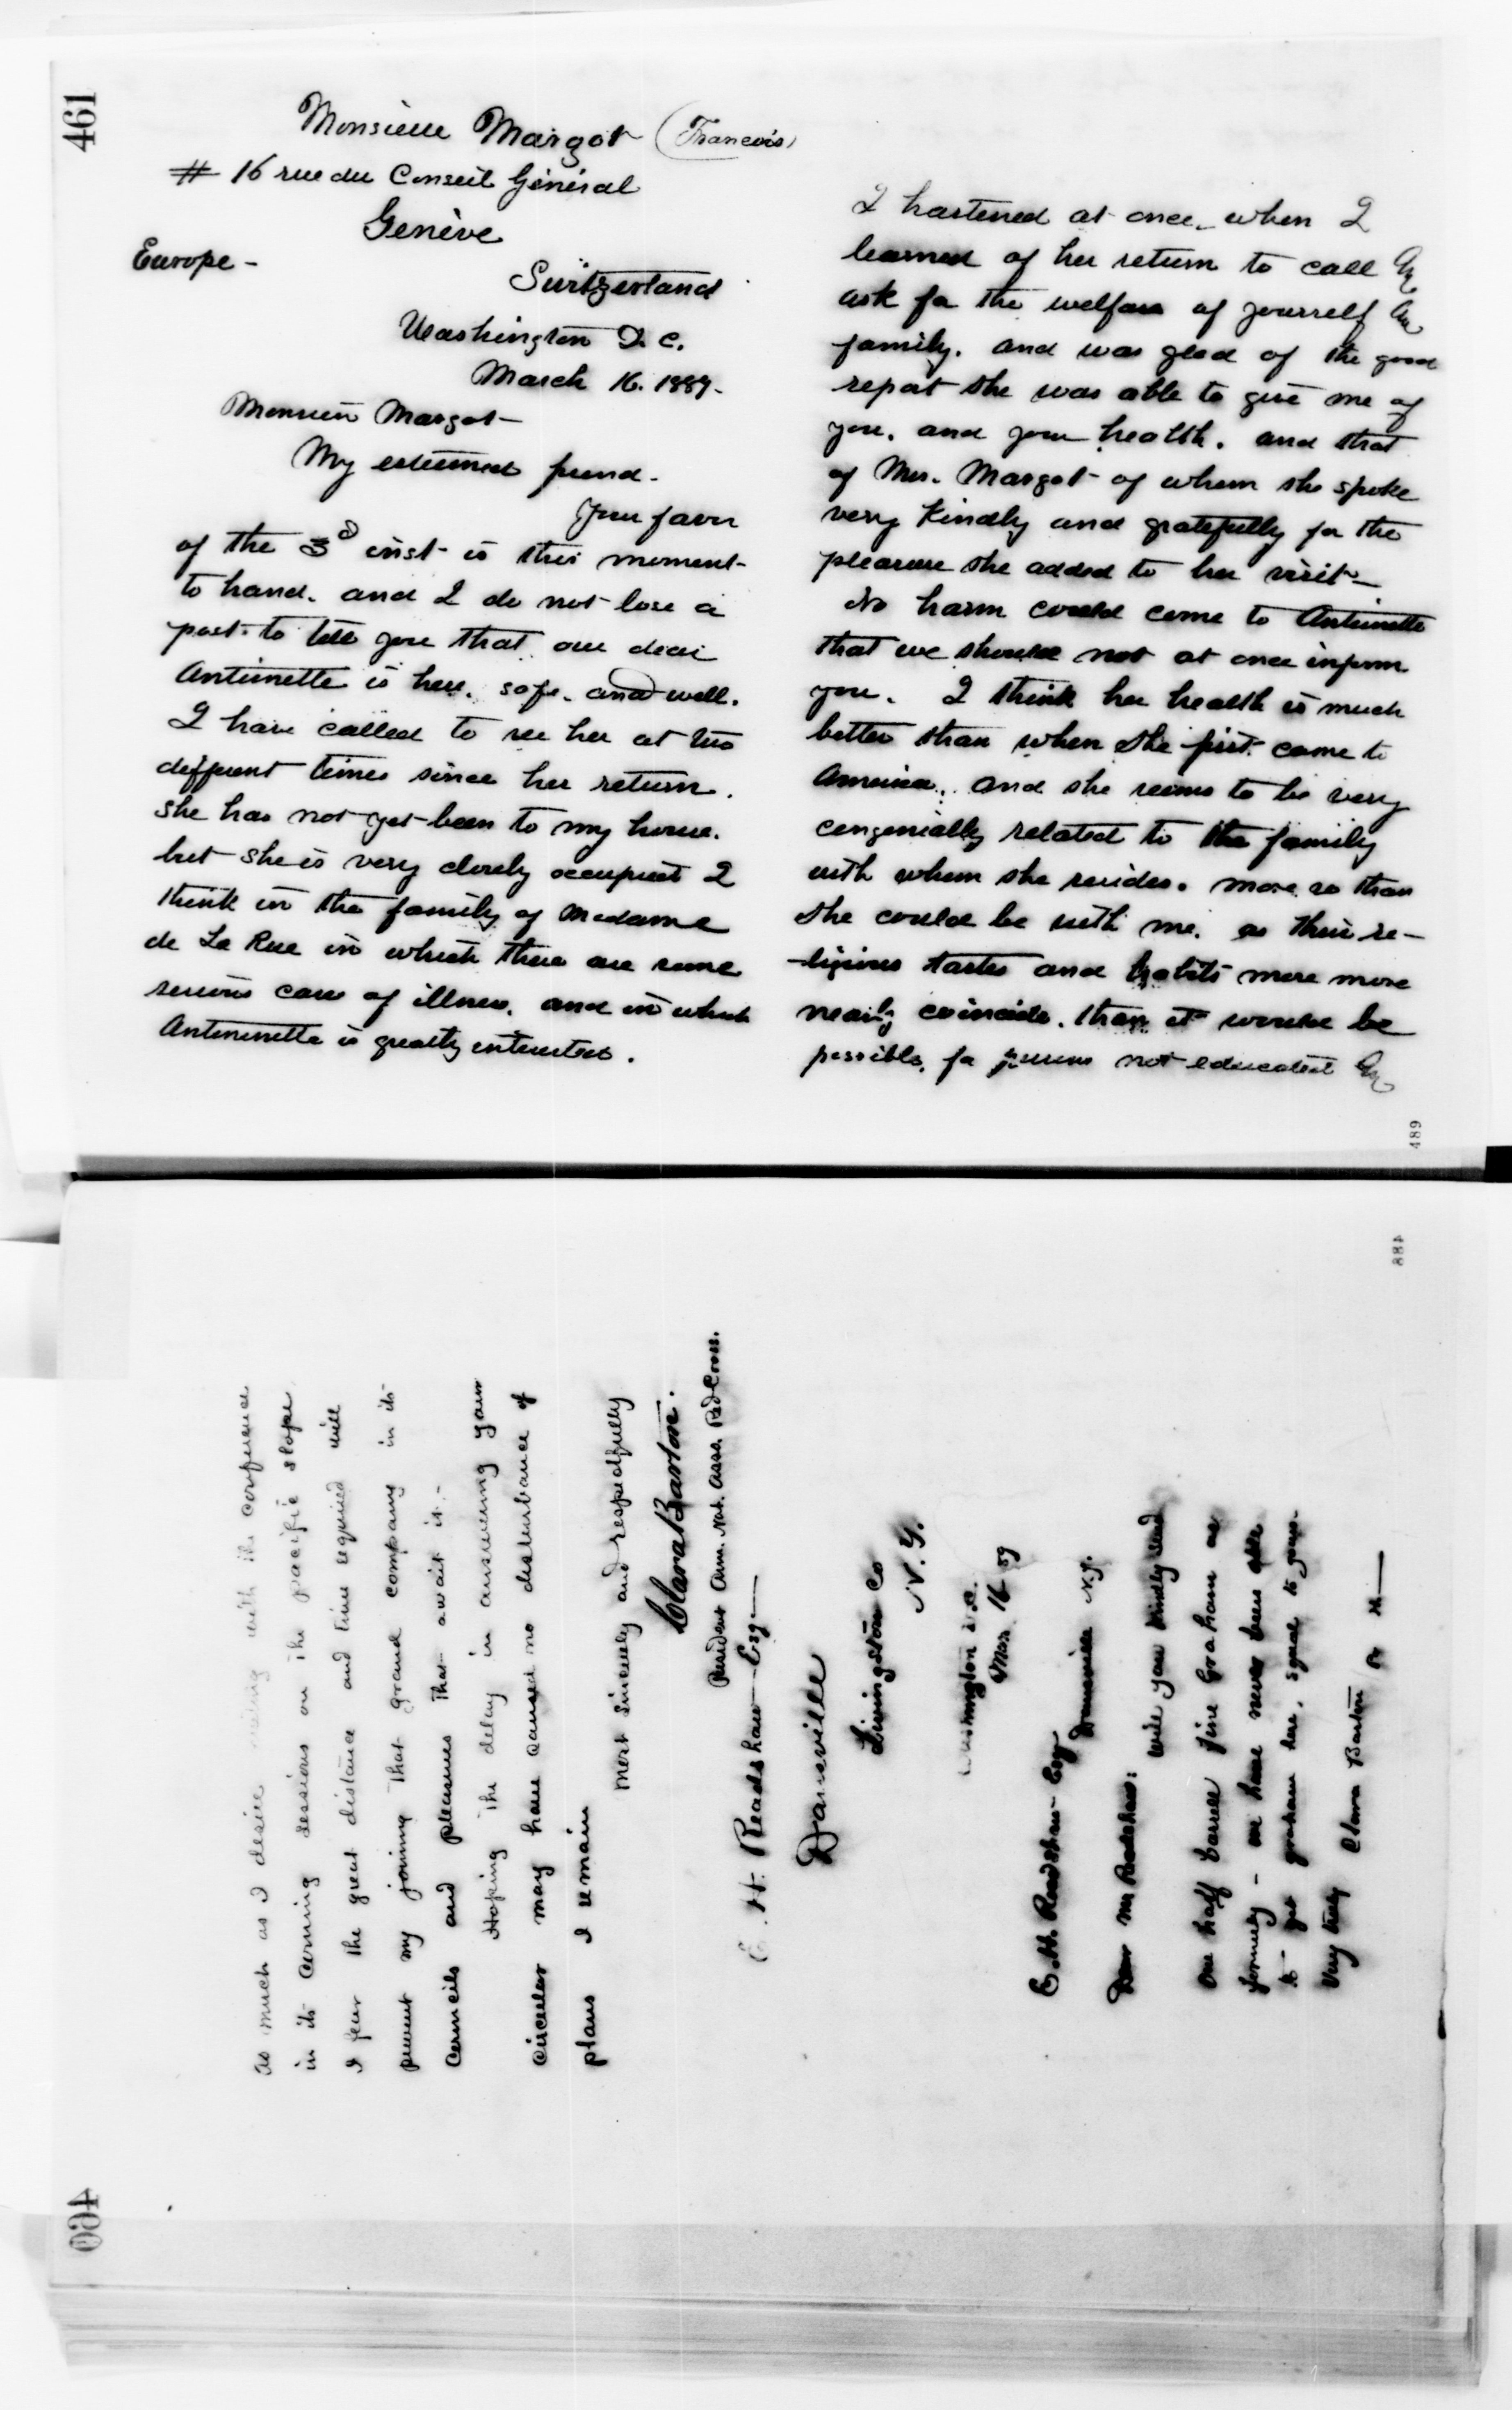 461
Monsieur Margot (Francois)
# 16 rue du Conseil Général
Genève
Europe -
Switzerland
Washington D. C.
March 16. 1889.
Monsieur Margot -
My esteemed friend -
Your favor
of the 3d inst - is this moment -
to hand. and I do not lose a
post - to tell you that our dear
Antoinette is here. safe. and well.
I have called to see her at two
different times since her return.
She has not yet been to my house.
but she is very closely occupied I
think in the family of Madame
de La Rue in which there are some
serious cases of illness. and in which
Antoinette is greatly interested.
I hastened at once, when I
learned of her return to call &
ask for the welfare of yourself &
family. and was glad of the good
report she was able to give me of
you. and your health. and that
of Mrs. Margot - of whom she spoke
very kindly and gratefully for the
pleasure she added to her visit -
No harm could come to Antoinette
that we should not at once inform
you. I think her health is much
better than when she first came to
America. and she seems to be very
congenially related to the family
with whom she resides. more so than
she could be with me. as their re-
-ligious tastes and habits more
nearly coincide. than it would be
possible. for persons not educated &
489
488
as much as I desire with the conference
in its coming sessions on the pacific slope
I fear the great distance and time required will
prevent my joining that grand company in its
Councils and pleasures that await it. -
Hoping the delay in answering your
circular may have caused no disturbance of
plans I remain
most sincerely and respectfully
Clara Barton.
President Am. Nat. Asso. Red Cross.
E. H. Readshaw Esq -
Dansville
Livingston Co
N. Y.
Washington D. C.
Mar 16 89
E. H. Readshaw Esq
Dansville N.Y.
Dear Mr Readshaw:
Will you kindly send
one half barrell fine Graham as
formerly - we have never been able
to get graham here, equal to yours.
Very truly Clara Barton
460